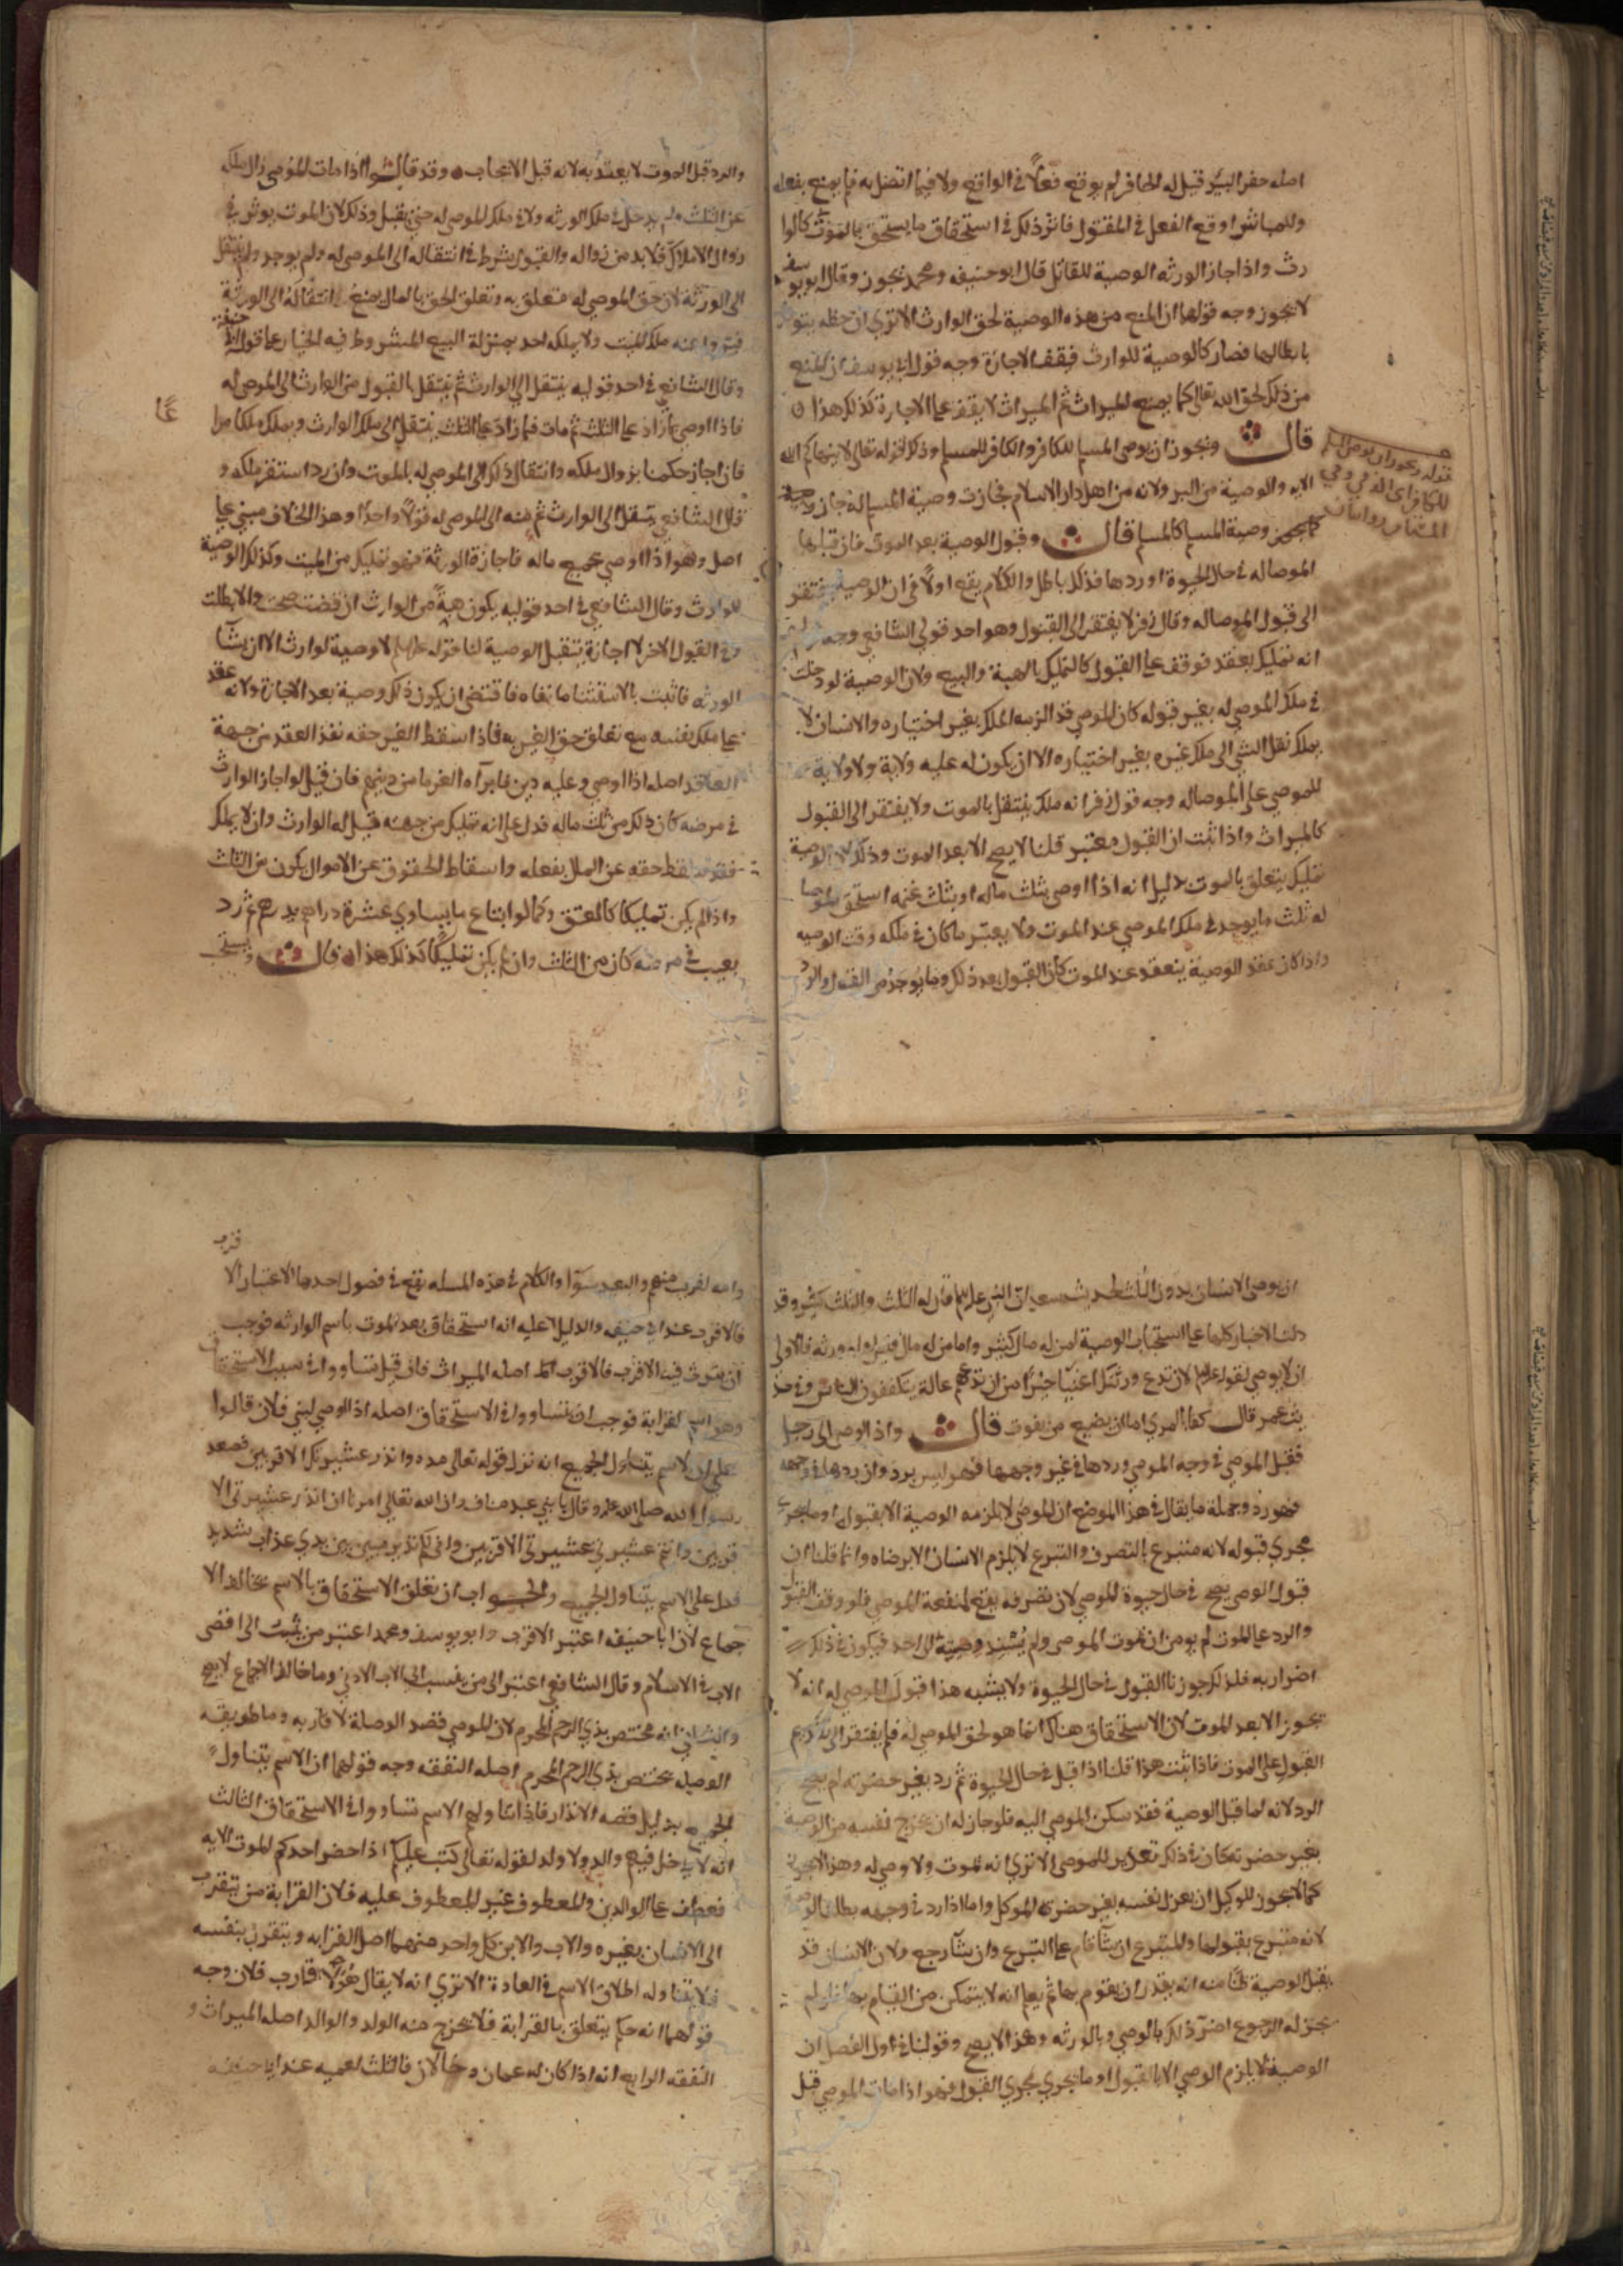 اصله حفر البئر قيل له الحافر لم يوقع فعلا في الواقع ولا فيما اتصل به فلم يمنع بفعله
والمباشر اوقع الفعل في المقتول فاثر ذلك في استحقاق ما يستحق بالموت كالوا
رث واذا اجاز الورثه الوصية للقاتل قال ابو حنيفه ومحمد تجوز وقال ابو يوسف
لا تجوز وجه قولهما ان المنع من هذه الوصية لحق الوارث الا ترى ان حظه يتوفر
بابطالها فصار كالوصية للوارث فيقف الاجازة وجه قول ابي يوسف ان المنع
من ذلك لحق الله تعالى كما يمنع الميراث ثم الميراث لا يقف على الاجازة كذلك هذا
قال ويجوز ان يوصي المسلم للكافر والكافر للمسلم وذلك لقوله تعالى لا ينهاكم الله
الايه والوصية من البر ولانه من اهل دار الاسلام فجازت وصية المسلم له جاز وصيته
كما يجوز وصية المسلم كالمسلم قال وقبول الوصية بعد الموت فان قبلها
الموصا له في حال الحيوة او ردها فذلك باطل والكلام يقع اولا في ان الوصية يفتقر
الى قبول الموصا له وقال زفر لا يفتقر الى القبول وهو احد قولي الشافعي وجه
انه تمليك بعقد فوقف على القبول كالتمليك بالهبة والبيع ولان الوصية لو دخلت
في ملك الموصى له بغير قوله كان الموصي قد الزمه الملك بغير اختياره والانسان لا
يملك نقل الشي الى ملك غيره بغير اختياره الا ان يكون له عليه ولاية ولا ولاية
للموصي على الموصا له وجه قول زفر انه ملك ينتقل بالموت ولا يفتقر الى القبول
كالميراث واذا ثبت ان القبول معتبر قلنا لا يصح الا بعد الموت وذلك لان الوصية
تمليك يتعلق بالموت بدليل انه اذا اوصى بثلث ماله او بثلث غنمه استحق الموصا
له ثلث ما يوجد في ملك الموصي عند الموت ولا يعتبر ما كان في ملكه وقت الوصيه
واذا كان عقد الوصية ينعقد عند الموت كان القبول بعد ذلك وما يوجد من القبول والرد
قوله ويجوز ان يوصي المسلم
للكافر اي الذمي وفي
المستامن روايتان
والرد قبل الموت لا يعتد به لانه قبل الايجاب وقد قالوا اذا مات الموصي زال ملكه
عن الثلث ولم يدخل في ملك الورثه ولا في ملك الموصى له حتى يقبل وذلك لان الموت يوثر في
زوال الاملاك فلا بد من زواله والقبول شرط في انتقاله الى الموصى له ولم يوجد ولم ينتقل
الى الورثة لان حق الموصى له متعلق به وتعلق الحق بالمال يمنع انتقاله الى الورثة
ملك الميت ولا يملكه احد بمنزلة البيع المشروط فيه الخيار على قول ابي حنيفه
وقال الشافعي في احد قوليه ينتقل الى الوارث ثم ينتقل بالقبول من الوارث الى الموصى له
فاذا اوصى بما زاد على الثلث ثم مات فما زاد على الثلث ينتقل الى ملك الوارث ويملك ملكا مرا
عًا
فان اجاز حكمنا بزوال ملكه وانتقال ذلك الى الموصى له بالموت وان رد استقر ملكه و
قال الشافعي ينتقل الى الوارث ثم منه الى الموصى له قولا واحدا وهذا الخلاف مبني على
اصل وهو اذا اوصى بجميع ماله فاجازة الورثة فهو تمليك من الميت وكذلك الوصية
للوارث وقال الشافعي في احد قوليه يكون هبة من الوارث ان قبضت صحت والا بطلت
وفي القول الاخر لا اجازة لنا قوله لا وصية لوارث الا ان يشا
الورثه فاثبت بالاستثنا ما نفاه فاقتضى ان يكون ذلك وصية بعد الاجازة ولانه عقد
على ملك نفسه مع تعلق حق الغير به فاذا اسقط الغير حقه نفذ العقد من جهة
العاقد اصله اذا اوصى وعليه دين فابرآه الغرما من دينهم فان قيل لو اجاز الوارث
في مرضه كان ذلك من ثلث ماله فدل على انه تمليك من جهته قيل له الوارث وان لا يملك
فقد اسقط حقه عن المال بفعله واسقاط الحقوق عن الاموال يكون من الثلث
واذا لم يكن تمليكا كالعتق وكما لو ابتاع ما يساوي عشرة دراهم بدرهم ثم رد
بعيب في مرضه كان من الثلث وان لم يكن تمليكا كذلك هذا قال ويستحب
ان يوصي الانسان بدون الثلث لحديث سعد ان النبي قال له الثلث والثلث كثير وقد
دلت الاخبار كلها على استحباب الوصية لمن له مال كثير واما من له مال قليل وله ورثه فالاولى
ان لا يوصي لقوله لان تدع ورثتك اغنيا خير من ان تدعهم عالة يتكففون الناس وفي حد
يث عمر قال كفا بالمرء اثما ان يضيع من يقوت قال واذا اوصى الى رجل
فقبل الموصي في وجه الموصي وردها في غير وجهه فهو ليس برد وان ردها في وجهه
فهو رد وجملة ما يقال في هذا الموضع ان الموصى لا يلزمه الوصية الا بقبوله او ما يجري
مجري قبوله لانه متبرع بالتصرف والتبرع لا يلزم الانسان الا برضاه وانما قلنا ان
قبول الوصي يصح في حال حيوة الموصي لان تصرفه يقع لمنفعة الموصي فلو وقف القبول
والرد على الموت لم يومن ان يموت الموصي ولم يسند وصيته الى احد فيكون في ذلك
اضرار به فلذلك جوزنا القبول في حال الحيوة ولا يشبه هذا قبول الموصى له انه لا
يجوز الا بعد الموت لان الاستحقاق هناك انما هو لحق الموصى له فلم يفتقر الى تقديم
القبول على الموت فاذا ثبت هذا قلنا اذا قبل في حال الحيوة ثم رد بغير حضرته لم يصح
الرد لانه لما قبل الوصية فقد سكن الموصي اليه فلو جاز له ان يخرج نفسه من الوصية
بغير حضرته كان في ذلك تغرير للموصي الا ترى انه يموت ولا وصي له وهذا لا يجوز
كما لا يجوز للوكيل ان يعزل نفسه بغير حضرة الموكل واما اذا رد في وجهه بطلت الوصية
لانه متبرع بقبولها والمتبرع ان يشا قام على التبرع وان يشا رجع ولان الانسان قد
يقبل الوصية ظنا منه انه يقدر ان يقوم بها ثم يعلم انه لا يتمكن من القيام بها فلو لم
يجز له الرجوع اضر ذلك بالوصي وبالورثه وهذا لا يصح وقولنا في اول الفصل ان
الوصية لا يلزم الوصي الا بالقبول او ما يجري مجري القبول فهو اذا مات الموصي قبل
قرب
القريب منهم والبعيد سوا والكلام في هذه المسله يقع في فصول احدها الاعتبار الا
فالاقرب عند ابي حنيفه والدليل عليه انه استحقاق بعد الموت باسم الوارثه فوجب
ان يترث فيه الاقرب فالاقرب اصله الميراث فان قيل تساووا في سبب الاستحقاق
وهو اسم القرابة فوجب ان يتساووا في الاستحقاق اصله اذا اوصى لبني فلان قالوا
على ان الاسم يتناول الجميع انه نزل قوله تعالى وانذر عشيرتك الاقربين فصعد
رسول الله صلى الله عليه وقال يا بني عبد مناف ان الله تعالى امرنا ان انذر عشيرتي الا
قربين وانتم عشيرتي الاقربين واني لكم نذير مبين بين يدي عذاب شديد
فدل على الاسم يتناول الجميع والجواب ان تعلق الاستحقاق بالاسم يخالف الا
جماع لان ابا حنيفه اعتبر الاقرب وابو يوسف ومحمد اعتبر من ينسب الى اقصى
الاب في الاسلام وقال الشافعي اعتبر الى من ينسب الى الاب الادنى وما خالف الاجماع لا يصح
والثاني انه مختص بذي الرحم المحرم لان الموصي قصد الوصلة لاقاربه وما طريقه
الوصيله يختص بذي الرحم المحرم اصله النفقه وجه قولهما ان الاسم يتناول
الجميع بدليل قصه الانذار فاذا تناولهم الاسم تساووا في الاستحقاق الثالث
انه لا يدخل فيهم والد ولا ولد لقوله تعالى كتب عليكم اذا حضر احدكم الموت الايه
فعطف على الوالدين والمعطوف غير المعطوف عليه فلان القرابة من يتقرب
الى الانسان بغيره والاب والابن كل واحد منهما اصل القرابه ويتقرب بنفسه
فلا يتناوله اطلاق الاسم في العادة الا ترى انه لا يقال هولا اقارب فلان وجه
قولهما انه حكم يتعلق بالقرابة فلا يخرج منه الولد والوالد اصله الميراث و
النفقه الرابع انه اذا كان له عمان وخالان فالثلث لعميه عند ابي حنيفه